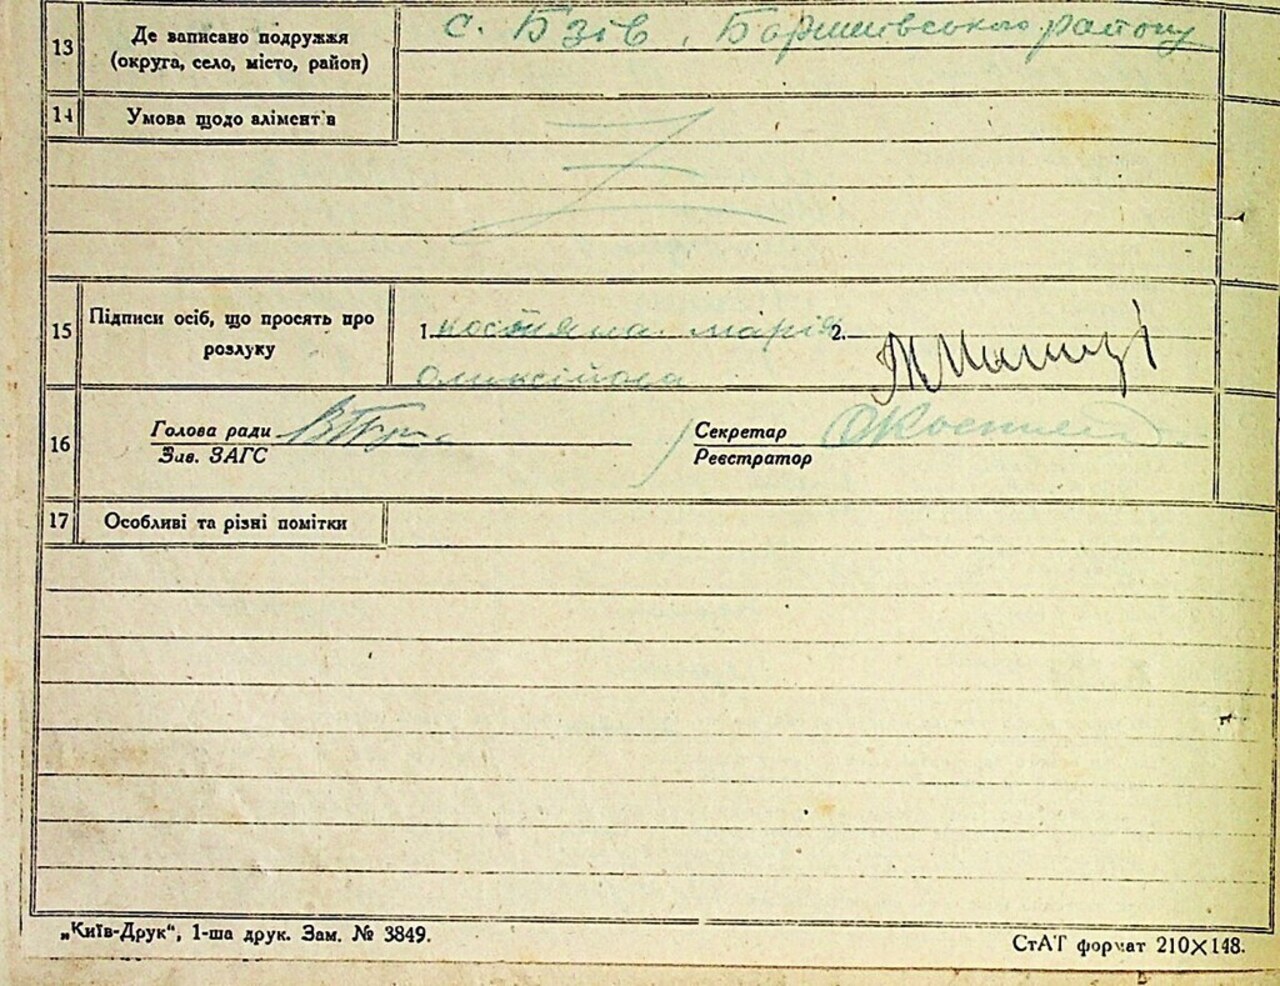 13 Де записано подружжя (округа, село, місто, район) с. Бзів, Баришівського району
14 Умова щодо алімент'в
15 Підписи осіб, що просять про розлуку 1. марія 2.
16 Голова ради Зав. ЗАГС Секретар Реєстратор
17 Особливі та різні помітки
„Київ-Друк“, 1-ша друк. Зам. № 3849.
СтАТ формат 210×148.